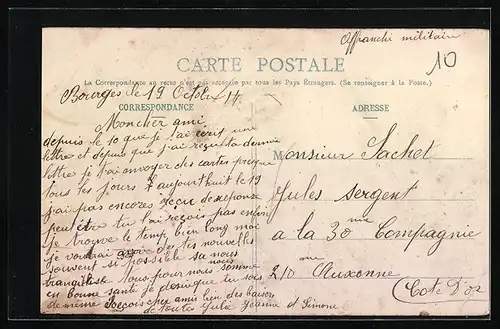 Affranchi militaire
10
CARTE POSTALE
La Correspondance au recto n'est pas acceptée par tous les Pays Étrangers. (Se renseigner à la Poste.)
Bourges le 19 Octobre 14
CORRESPONDANCE
Moncher ami
depuis le 10 que je t'ai écrit une
lettre et depuis que j'ai reçu ta dernière
lettre je t'ai envoyer des cartes presque
tous les jours aujourdhuit le 19
j'ai pas encores reçu de réponse
peut être tu les reçois pas enfin
je trouve le temp bien long moi
je voudrai des tes nouvelles
souvent si possible sa nous
tranquilise nous pour nous somme
en bonne santé je désire que tu sois
de même Reçois cher ami bien des baisers
de toute Jeanne et Simone
ADRESSE
Monsieur Sachet
Jules Sergent
a la 30 me Compagnie
210 me Auxonne
(Cote D'or